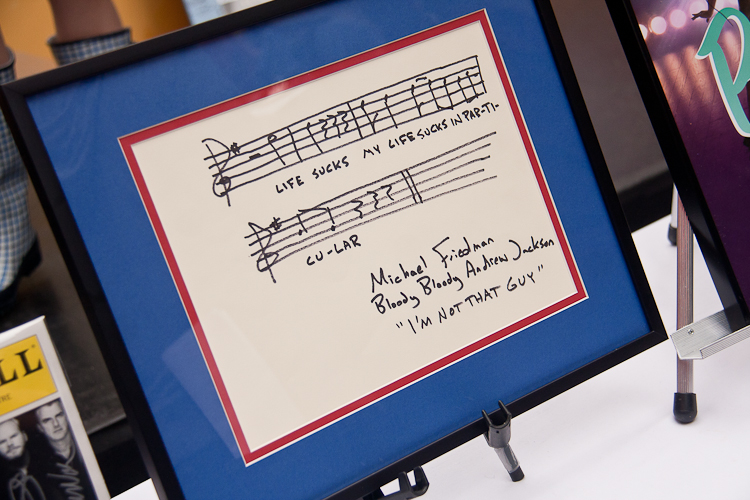 LIFE SUCKS MY LIFE SUCKS IN PAR-TI-
CU-LAR
Michael Friedman
Bloody Bloody Andrew Jackson
"I'M NOT THAT GUY"
LL